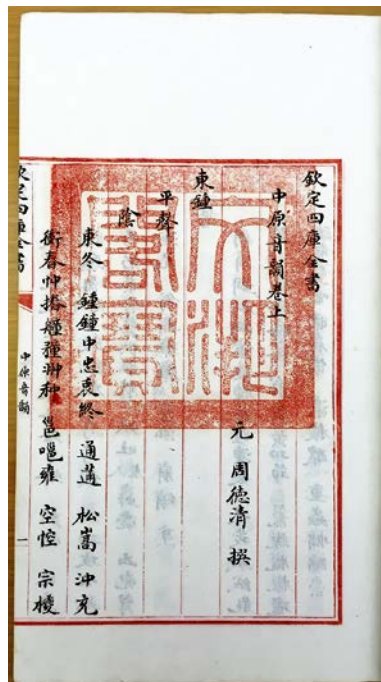 欽定四庫全書
中原音韻卷上
元 周德清 撰
東鍾
平聲
陰
東冬 鍾鐘中忠衷終 通蓪 松嵩 沖充
衝舂忡摏艟穜翀种 邕噰雍 空悾 宗椶
欽定四庫全書
中原音韻
一
文淵閣寶